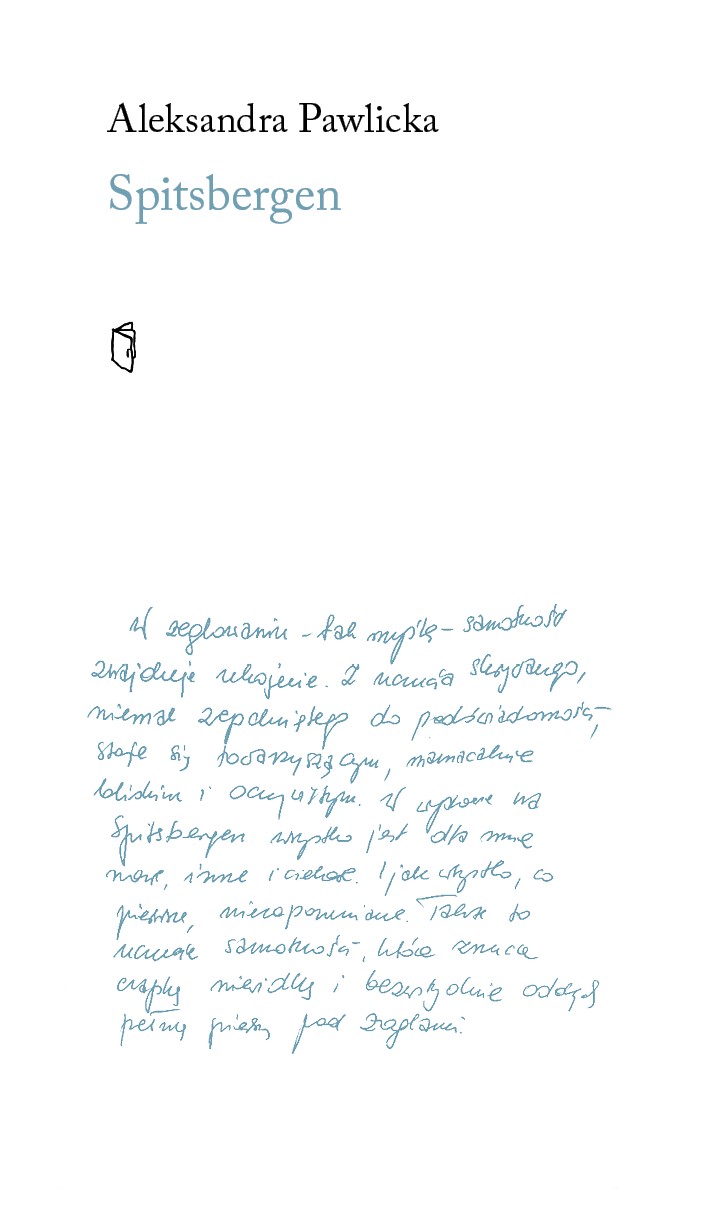 Aleksandra Pawlicka
Spitsbergen
W żeglowaniu – tak myślę – samotność
znajduje ukojenie. Z uczucia skrywanego,
niemal zepchniętego do podświadomości,
staje się towarzyszącym, namacalnie
bliskim i oczywistym. W wyprawie na
Spitsbergen wszystko jest dla mnie
nowe, inne i ciekawe. I jak wszystko, co
pierwsze, niezapomniane. Także to
uczucie samotności, które zrzuca
czapkę niewidkę i bezwstydnie oddycha
pełną piersią pod żaglami.